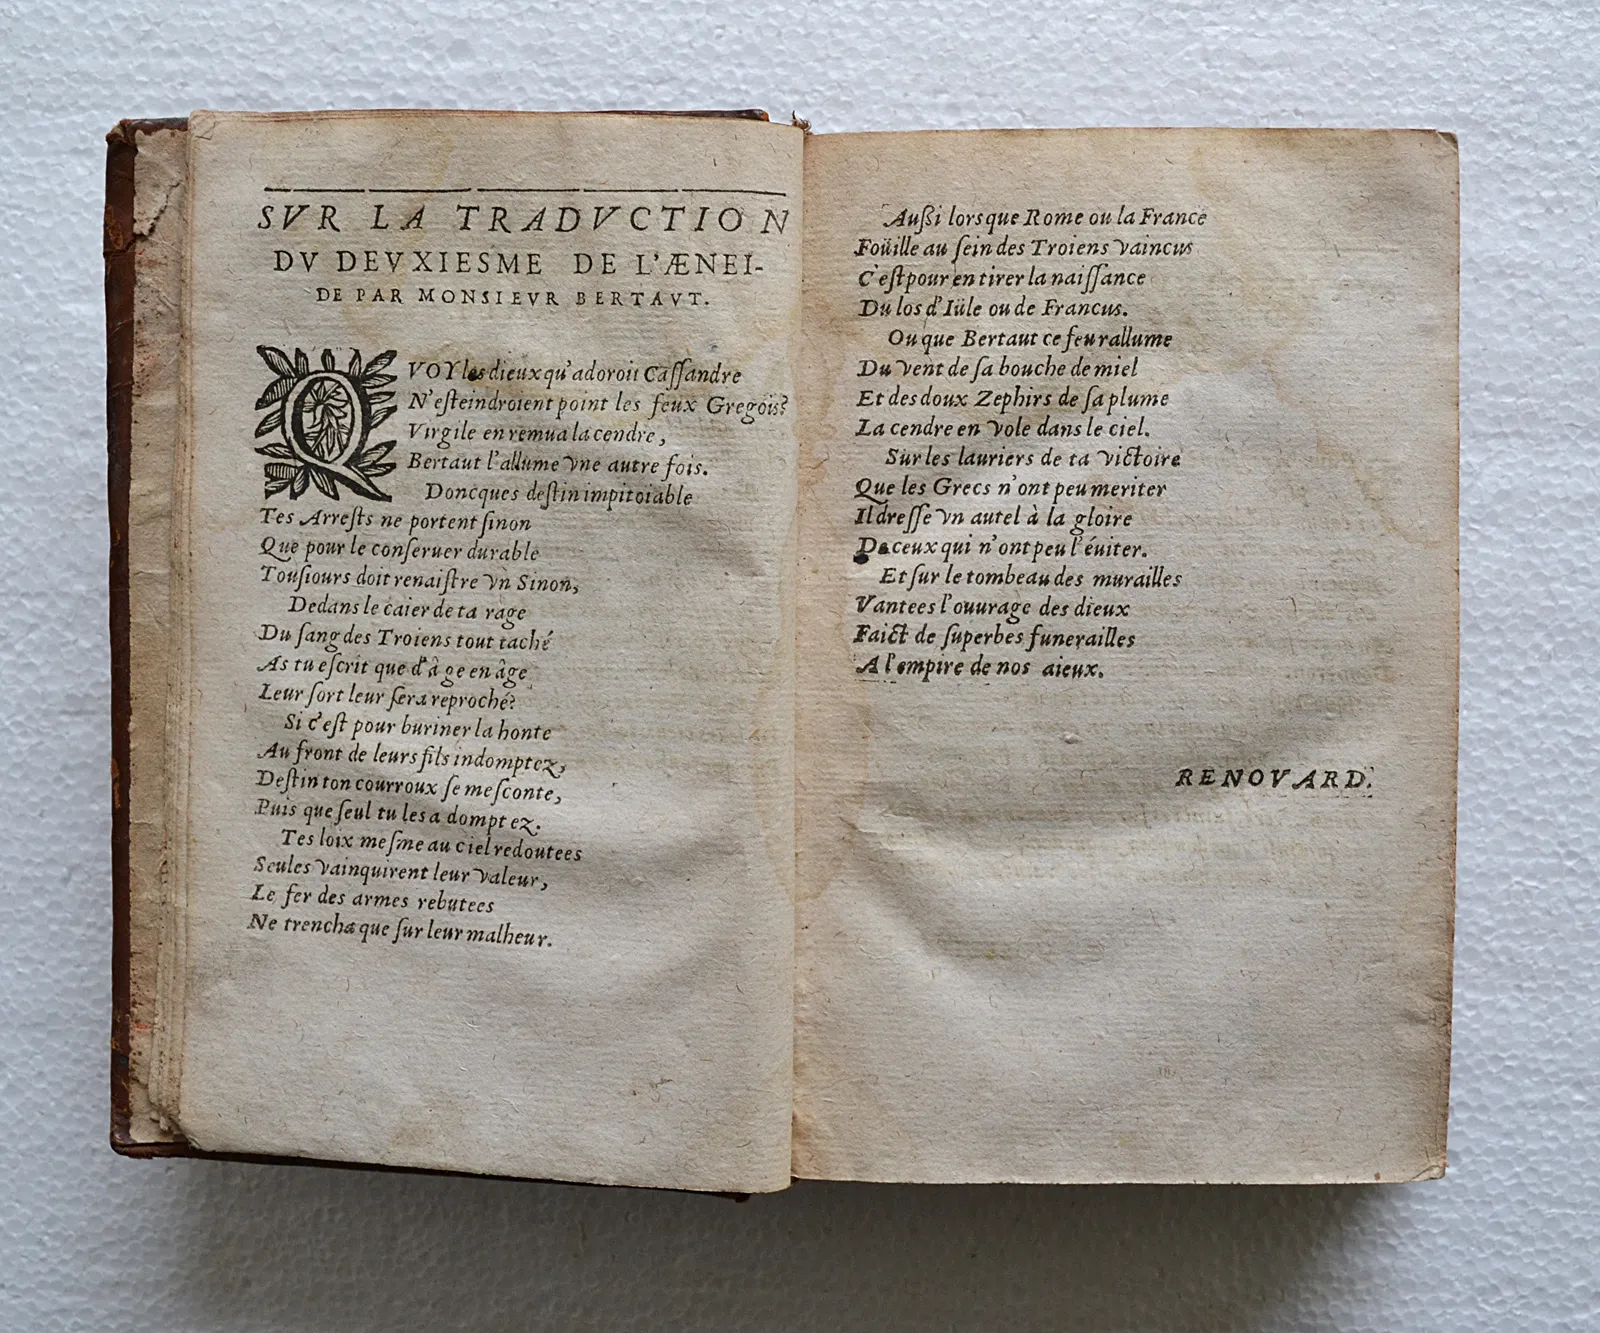 SVR LA TRADVCTION
DV DEVXIESME DE L'ÆNEI-
DE PAR MONSIEVR BERTAVT.
QVOY les dieux qu'adoroit Caſſandre
N'eſteindroient point les feux Gregois?
Virgile en remua la cendre,
Bertaut l'allume vne autre fois.
Doncques deſtin impitoiable
Tes Arreſts ne portent ſinon
Que pour le conſeruer durable
Touſiours doit renaiſtre vn Sinon,
Dedans le caier de ta rage
Du ſang des Troiens tout taché
As tu eſcrit que d'âge en âge
Leur ſort leur ſera reproché?
Si c'eſt pour buriner la honte
Au front de leurs fils indomptez,
Deſtin ton courroux ſe meſconte,
Puis que ſeul tu les a domptez.
Tes loix meſme au ciel redoutees
Seules vainquirent leur valeur,
Le fer des armes rebutees
Ne trencha que ſur leur malheur.
Auſſi lors que Rome ou la France
Foüille au ſein des Troiens vaincus
C'eſt pour en tirer la naiſſance
Du los d'Iüle ou de Francus.
Ou que Bertaut ce feu rallume
Du vent de ſa bouche de miel
Et des doux Zephirs de ſa plume
La cendre en vole dans le ciel.
Sur les lauriers de ta victoire
Que les Grecs n'ont peu meriter
Il dreſſe vn autel à la gloire
De ceux qui n'ont peu l'éuiter.
Et ſur le tombeau des murailles
Vantees l'ouurage des dieux
Faict de ſuperbes funerailles
A l'empire de nos aieux.
RENOVARD.